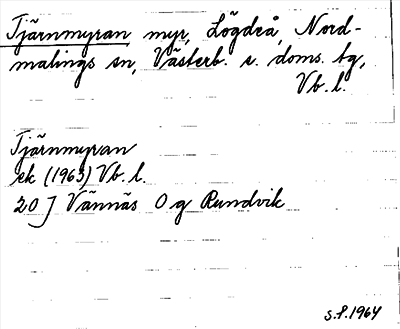 Tjärnmyran myr, Lögdeå, Nord-
malings sn, Västerb. s. doms. tg,
Vb. l.
Tjärnmyran
ek (1963) Vb. l.
20 J Vännäs O g Rundvik
S.P. 1964